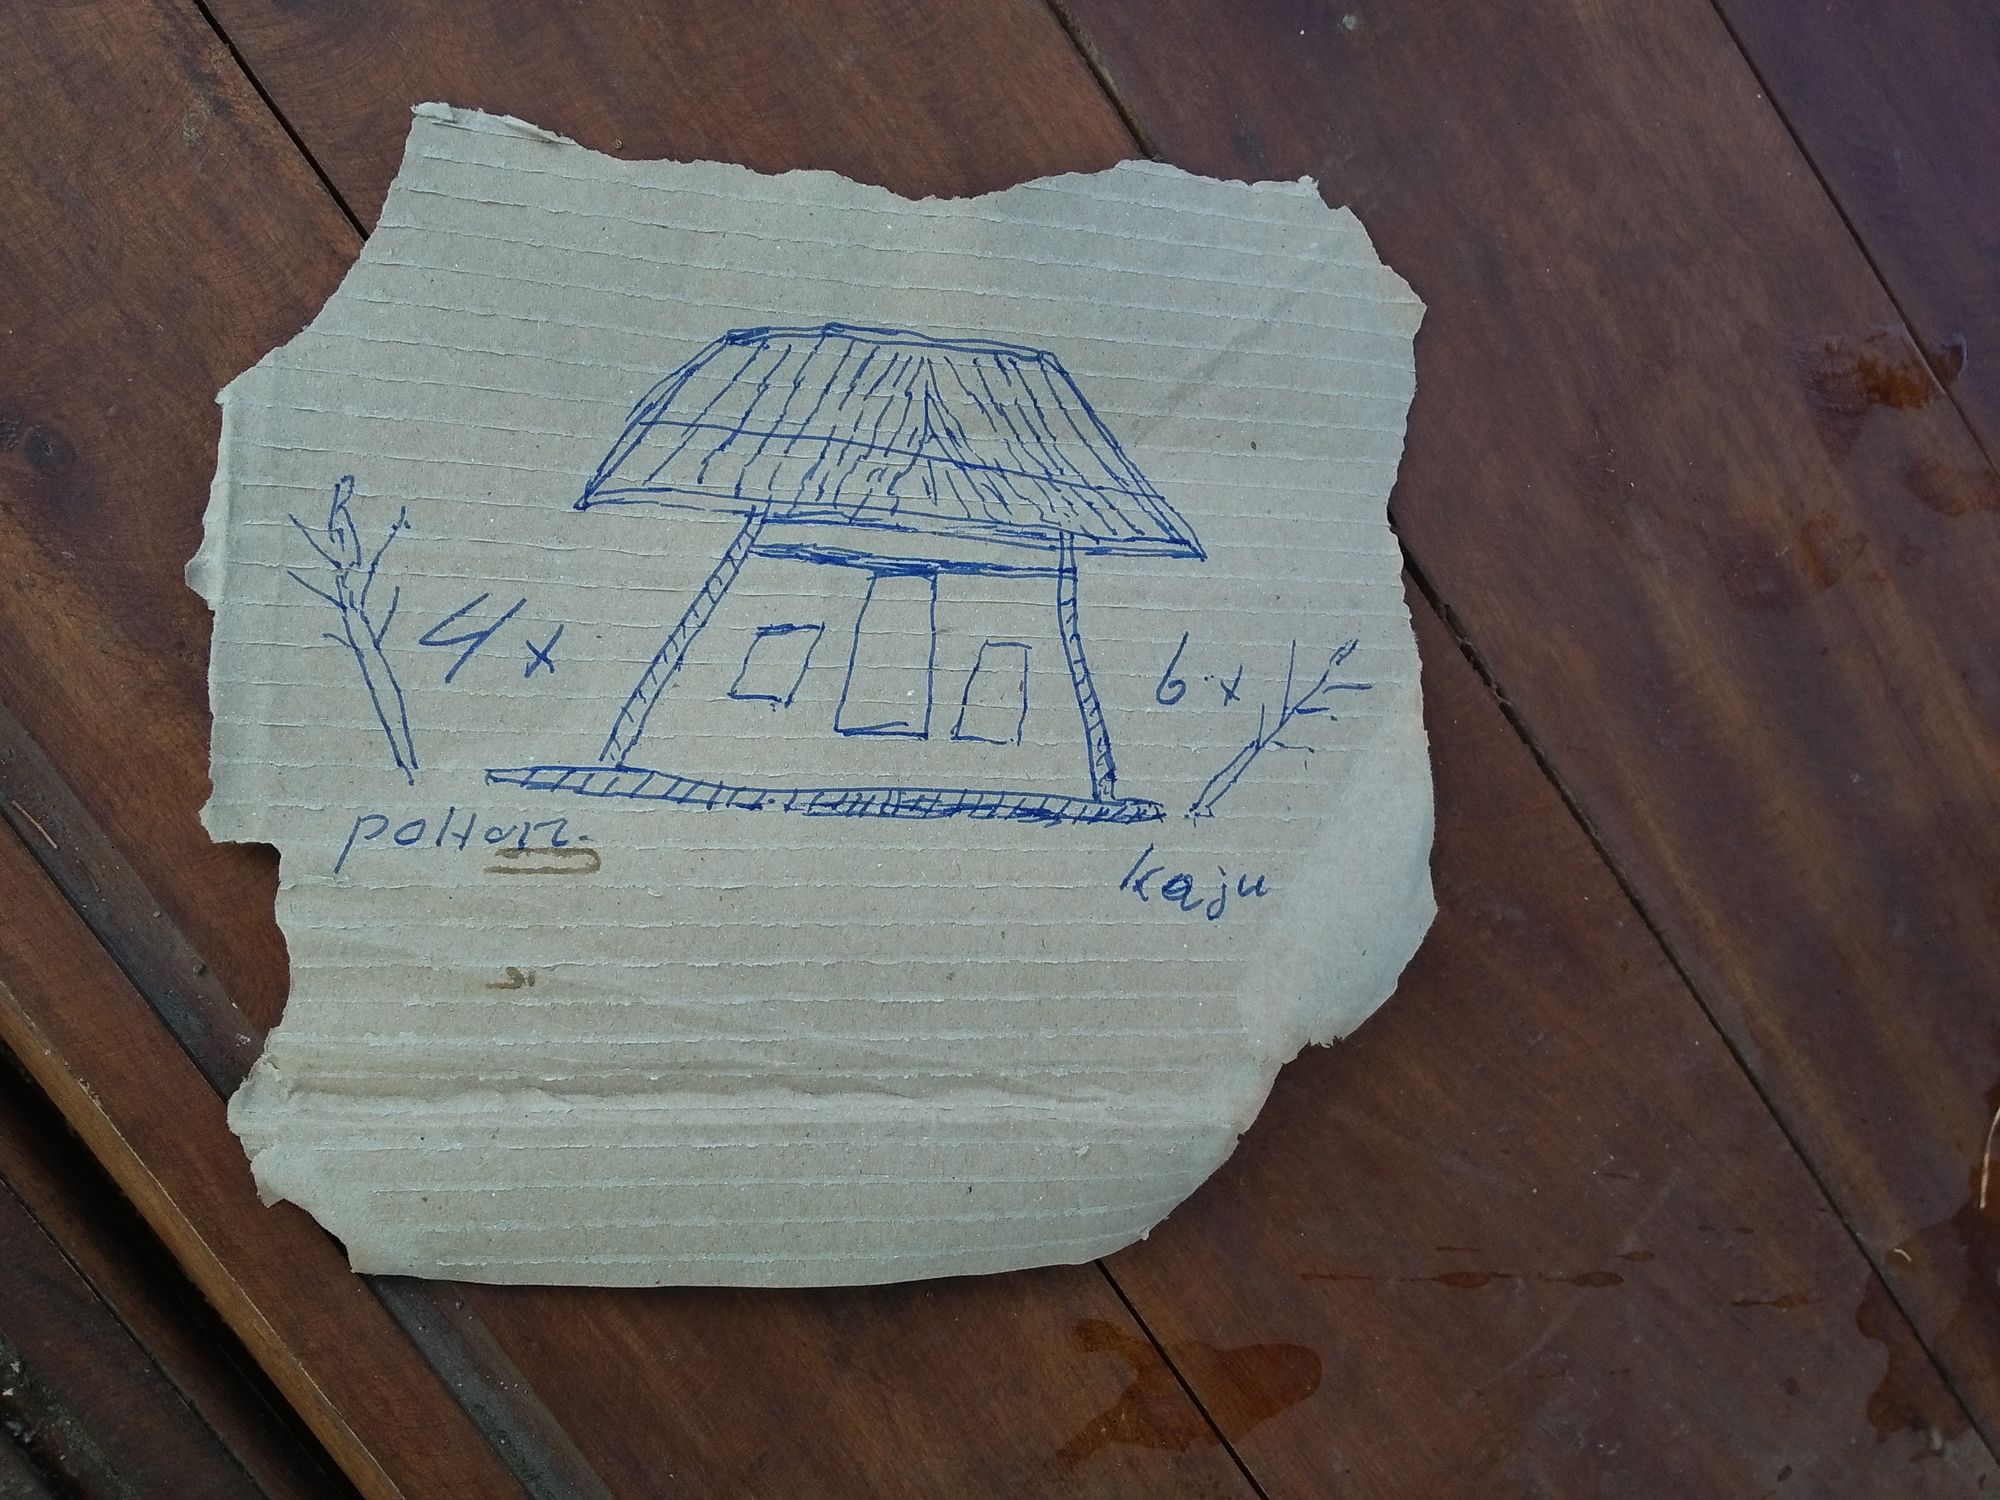 4 x
6 x
pohon.
kaju